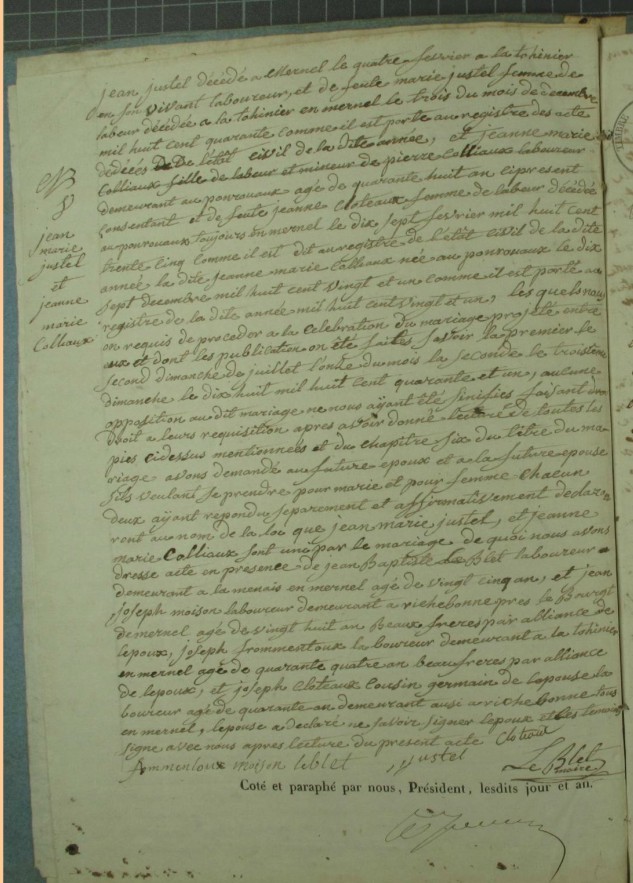 N°
8
jean
marie
justel
et
jeanne
marie
Colliaux
jean justel décédé a mernel le quatre fevrier a la tohinier
en son vivant laboureur, et de feute marie justel femme de
labeur décédée a la tohinier en mernel le trois du mois de decembre
mil huit cent quarante comme il est porté au registre des acte
dédécés de l'état civil de la dite année, et jeanne marie
Colliaux fille de labeur et mineur de pierre Colliaux laboureur
demeurant au ponrouaux agé de quarante huit an cipresent
consentant et de feute jeanne Cloteaux femme de labeur décédée
au ponrouaux toujours en mernel le dix sept fevrier mil huit cent
trente cinq comme il est dit au registre de l'état civil de la dite
année la dite jeanne marie Colliaux née au ponrouaux le dix
sept decembre mil huit cent vingt et un comme il est porté au
registre de la dite année mil huit cent vingt et un, les quels nous
on requis de proceder a la Celebration du mariage projeté entre
eux et dont les publication on été faites savoir la premier le
second dimanche de juillet l'onze du mois la seconde le troisieme
dimanche le dix huit mil huit cent quarante et un, aucune
opposition au dit mariage ne nous ayant été sinifies faisant
droit a leurs requisition apres avoir donné lecture de toutes les
pies cidessus mentionnées et du chapitre six du titre du ma-
riage avons demandé au future epoux et a la future epouse
sils veulant se prendre pour marie et pour femme chacun
deux ayant repondu separement et affirmativement declaz
ront au nom de la loi que jean marie justel, et jeanne
marie Colliaux sont uni par le mariage de quoi nous avons
dresse acte en presence de jean Baptiste Le Blet laboureur
demeurant a la menais en mernel agé de vingt cinq an, et jean
joseph moison laboureur demeurant a richebonne pres le Bourgt
de mernel agé de vingt huit an Beaux freres par alliance de
lepoux, joseph frommentoux la boureur demeurant a la tohinier
en mernel agé de quarante quatre an beau freres par alliance
de lepoux, et joseph Cloteaux Cousin germain de lapouse la
boureur agé de quarante an demeurant ausi a richebonne tous
en mernel, lepouse a declaré ne savoir signer lepoux et les temoins
signe avec nous apres lecture du present acte Cloteau
frommentoux moison leblet justel
Le Blet
maire
Coté et paraphé par nous, Président, lesdits jour et an.
TIMBRE